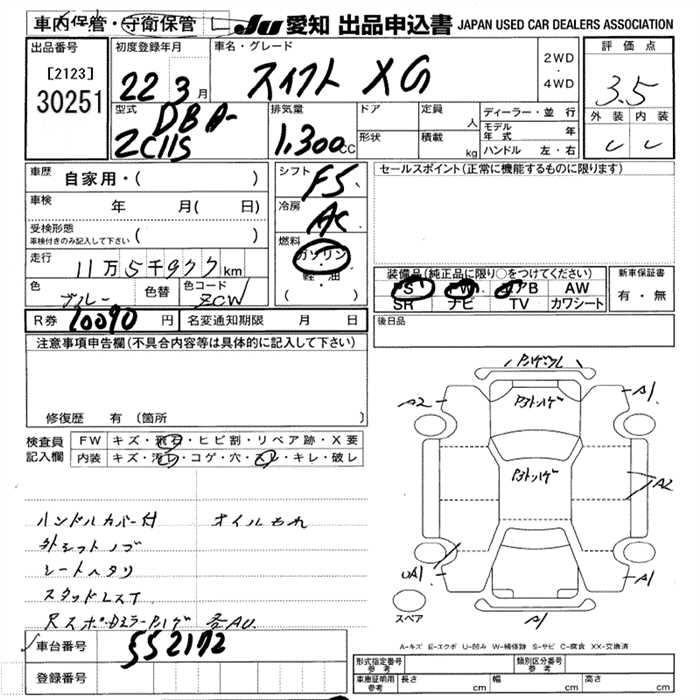 車内保管・守衛保管
JU 愛知 出品申込書 JAPAN USED CAR DEALERS ASSOCIATION
出品番号
[2123]
30251
初度登録年月
22 3月
車名・グレード
スイフト XG
2WD
・
4WD
評価点
3.5
外装 内装
C C
型式
DBA-
ZC11S
排気量
1,300cc
ドア
形状
定員 人
積載 kg
ディーラー・並行
モデル年式 年
ハンドル 左・右
車歴 自家用・( )
車検 年 月(日)
受検形態
車検付きのみ記入して下さい ( )
走行 11万5千977km
色 ブルー 色替 色コード ZCW
R券 10090円 名変通知期限 月 日
シフト
F5
冷房
AC
燃料
ガソリン
軽・油
セールスポイント(正常に機能するものに限ります)
装備品(純正品に限り○をつけてください)
PS PW エアB AW
SR ナビ TV カワシート
新車保証書
有・無
後日品
注意事項申告欄(不具合内容等は具体的に記入して下さい)
修復歴 有 (箇所
検査員
記入欄
FW キズ・飛石・ヒビ割・リペア跡・X要
内装 キズ・汚レ・コゲ・穴・スレ・キレ・破レ
ハンドルカバー付 オイルもれ
外シフトノブ
シートヘタリ
スタッドレスT
車台番号 552172
登録番号
A2
A1
A2
UA1
A1
A1
スペア
A-キズ E-エクボ U-凹み W-補修跡 S-サビ C-腐食 XX-交換済
形式指定番号
参考
類別区分番号
参考
車庫証明用
参考
長さ cm 幅 cm 高さ cm